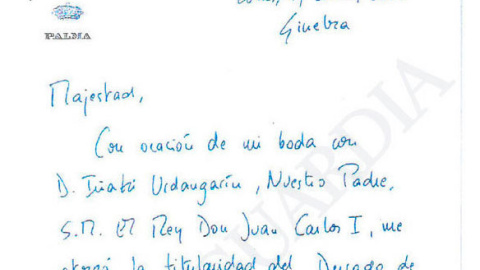 Ginebra
PALMA
Majestad,
Con ocasión de mi boda con
D. Iñaki Urdangarín, Nuestro Padre,
S.M. El Rey Don Juan Carlos I, me
otorgó la titularidad del Ducado de
GUARDIA